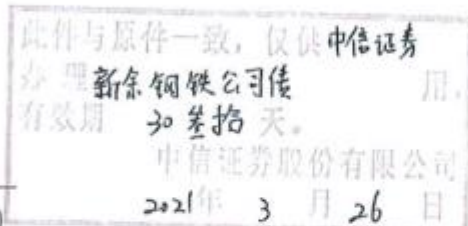 此件与原件一致，仅供中信证券
办理新余钢铁公司债用，
有效期 30 叁拾 天。
中信证券股份有限公司
2021年 3 月 26 日